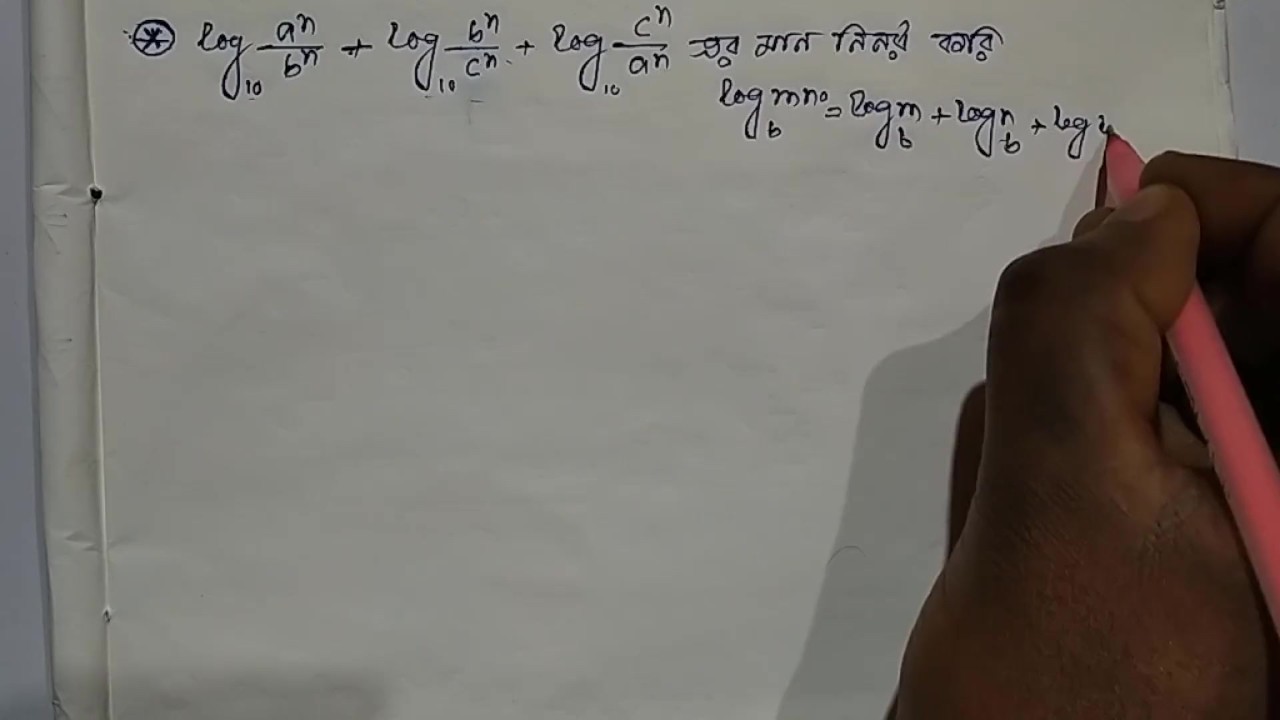 ⊛ log₁₀ aⁿ/bⁿ + log₁₀ bⁿ/cⁿ + log₁₀ cⁿ/aⁿ এর মান নির্নয় করি
log_b mno = log_b m + log_b n + log